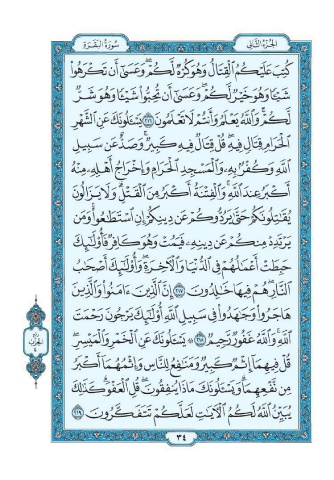 الجزء الثاني سورة البقرة
كُتِبَ عَلَيْكُمُ ٱلْقِتَالُ وَهُوَ كُرْهٌ لَّكُمْ ۖ وَعَسَىٰٓ أَن تَكْرَهُوا۟
شَيْـًٔا وَهُوَ خَيْرٌ لَّكُمْ ۖ وَعَسَىٰٓ أَن تُحِبُّوا۟ شَيْـًٔا وَهُوَ شَرٌّ
لَّكُمْ ۗ وَٱللَّهُ يَعْلَمُ وَأَنتُمْ لَا تَعْلَمُونَ ٢١٦ يَسْـَٔلُونَكَ عَنِ ٱلشَّهْرِ
ٱلْحَرَامِ قِتَالٍ فِيهِ ۖ قُلْ قِتَالٌ فِيهِ كَبِيرٌ ۖ وَصَدٌّ عَن سَبِيلِ
ٱللَّهِ وَكُفْرٌۢ بِهِۦ وَٱلْمَسْجِدِ ٱلْحَرَامِ وَإِخْرَاجُ أَهْلِهِۦ مِنْهُ
أَكْبَرُ عِندَ ٱللَّهِ ۚ وَٱلْفِتْنَةُ أَكْبَرُ مِنَ ٱلْقَتْلِ ۗ وَلَا يَزَالُونَ
يُقَـٰتِلُونَكُمْ حَتَّىٰ يَرُدُّوكُمْ عَن دِينِكُمْ إِنِ ٱسْتَطَـٰعُوا۟ ۚ وَمَن
يَرْتَدِدْ مِنكُمْ عَن دِينِهِۦ فَيَمُتْ وَهُوَ كَافِرٌ فَأُو۟لَـٰٓئِكَ
حَبِطَتْ أَعْمَـٰلُهُمْ فِى ٱلدُّنْيَا وَٱلْـَٔاخِرَةِ ۖ وَأُو۟لَـٰٓئِكَ أَصْحَـٰبُ
ٱلنَّارِ ۖ هُمْ فِيهَا خَـٰلِدُونَ ٢١٧ إِنَّ ٱلَّذِينَ ءَامَنُوا۟ وَٱلَّذِينَ
هَاجَرُوا۟ وَجَـٰهَدُوا۟ فِى سَبِيلِ ٱللَّهِ أُو۟لَـٰٓئِكَ يَرْجُونَ رَحْمَتَ
ٱللَّهِ ۚ وَٱللَّهُ غَفُورٌ رَّحِيمٌ ٢١٨ ۞ يَسْـَٔلُونَكَ عَنِ ٱلْخَمْرِ وَٱلْمَيْسِرِ ۖ
قُلْ فِيهِمَآ إِثْمٌ كَبِيرٌ وَمَنَـٰفِعُ لِلنَّاسِ وَإِثْمُهُمَآ أَكْبَرُ
مِن نَّفْعِهِمَا ۗ وَيَسْـَٔلُونَكَ مَاذَا يُنفِقُونَ ۖ قُلِ ٱلْعَفْوَ ۗ كَذَٰلِكَ
يُبَيِّنُ ٱللَّهُ لَكُمُ ٱلْـَٔايَـٰتِ لَعَلَّكُمْ تَتَفَكَّرُونَ ٢١٩
٣٤